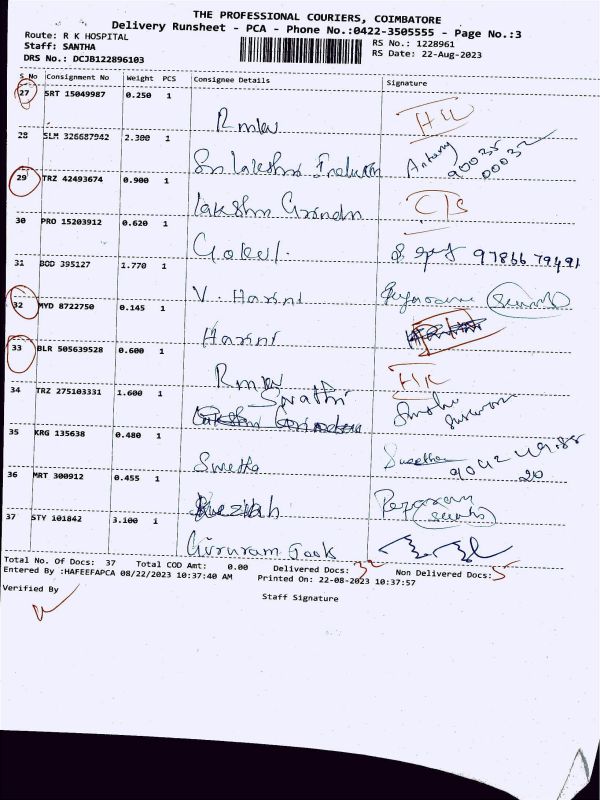 THE PROFESSIONAL COURIERS, COIMBATORE
Delivery Runsheet - PCA - Phone No.:0422-3505555 - Page No.:3
Route: R K HOSPITAL
Staff: SANTHA
DRS No.: DCJB122896103
RS No.: 1228961
RS Date: 22-Aug-2023
S No Consignment No Weight PCS Consignee Details Signature
27 SRT 15049987 0.250 1
28 SLM 326687942 2.300 1
Sri Lakshmi
Antony 90035 00032
29 TRZ 42493674 0.900 1
Lakshmi
30 PRO 15203912 0.620 1
Gokul. 97866 79491
31 BOD 395127 1.770 1
V. Harini
32 MYD 8722750 0.145 1
Harini
33 BLR 505639528 0.600 1
34 TRZ 275103331 1.600 1
Swathi
35 KRG 135638 0.480 1
Swetha Swetha
36 MRT 300912 0.455 1
37 STY 101842 3.100 1
Gururam
Total No. Of Docs: 37 Total COD Amt: 0.00 Delivered Docs: 32 Non Delivered Docs: 5
Entered By :HAFEEFAPCA 08/22/2023 10:37:40 AM Printed On: 22-08-2023 10:37:57
Verified By
Staff Signature